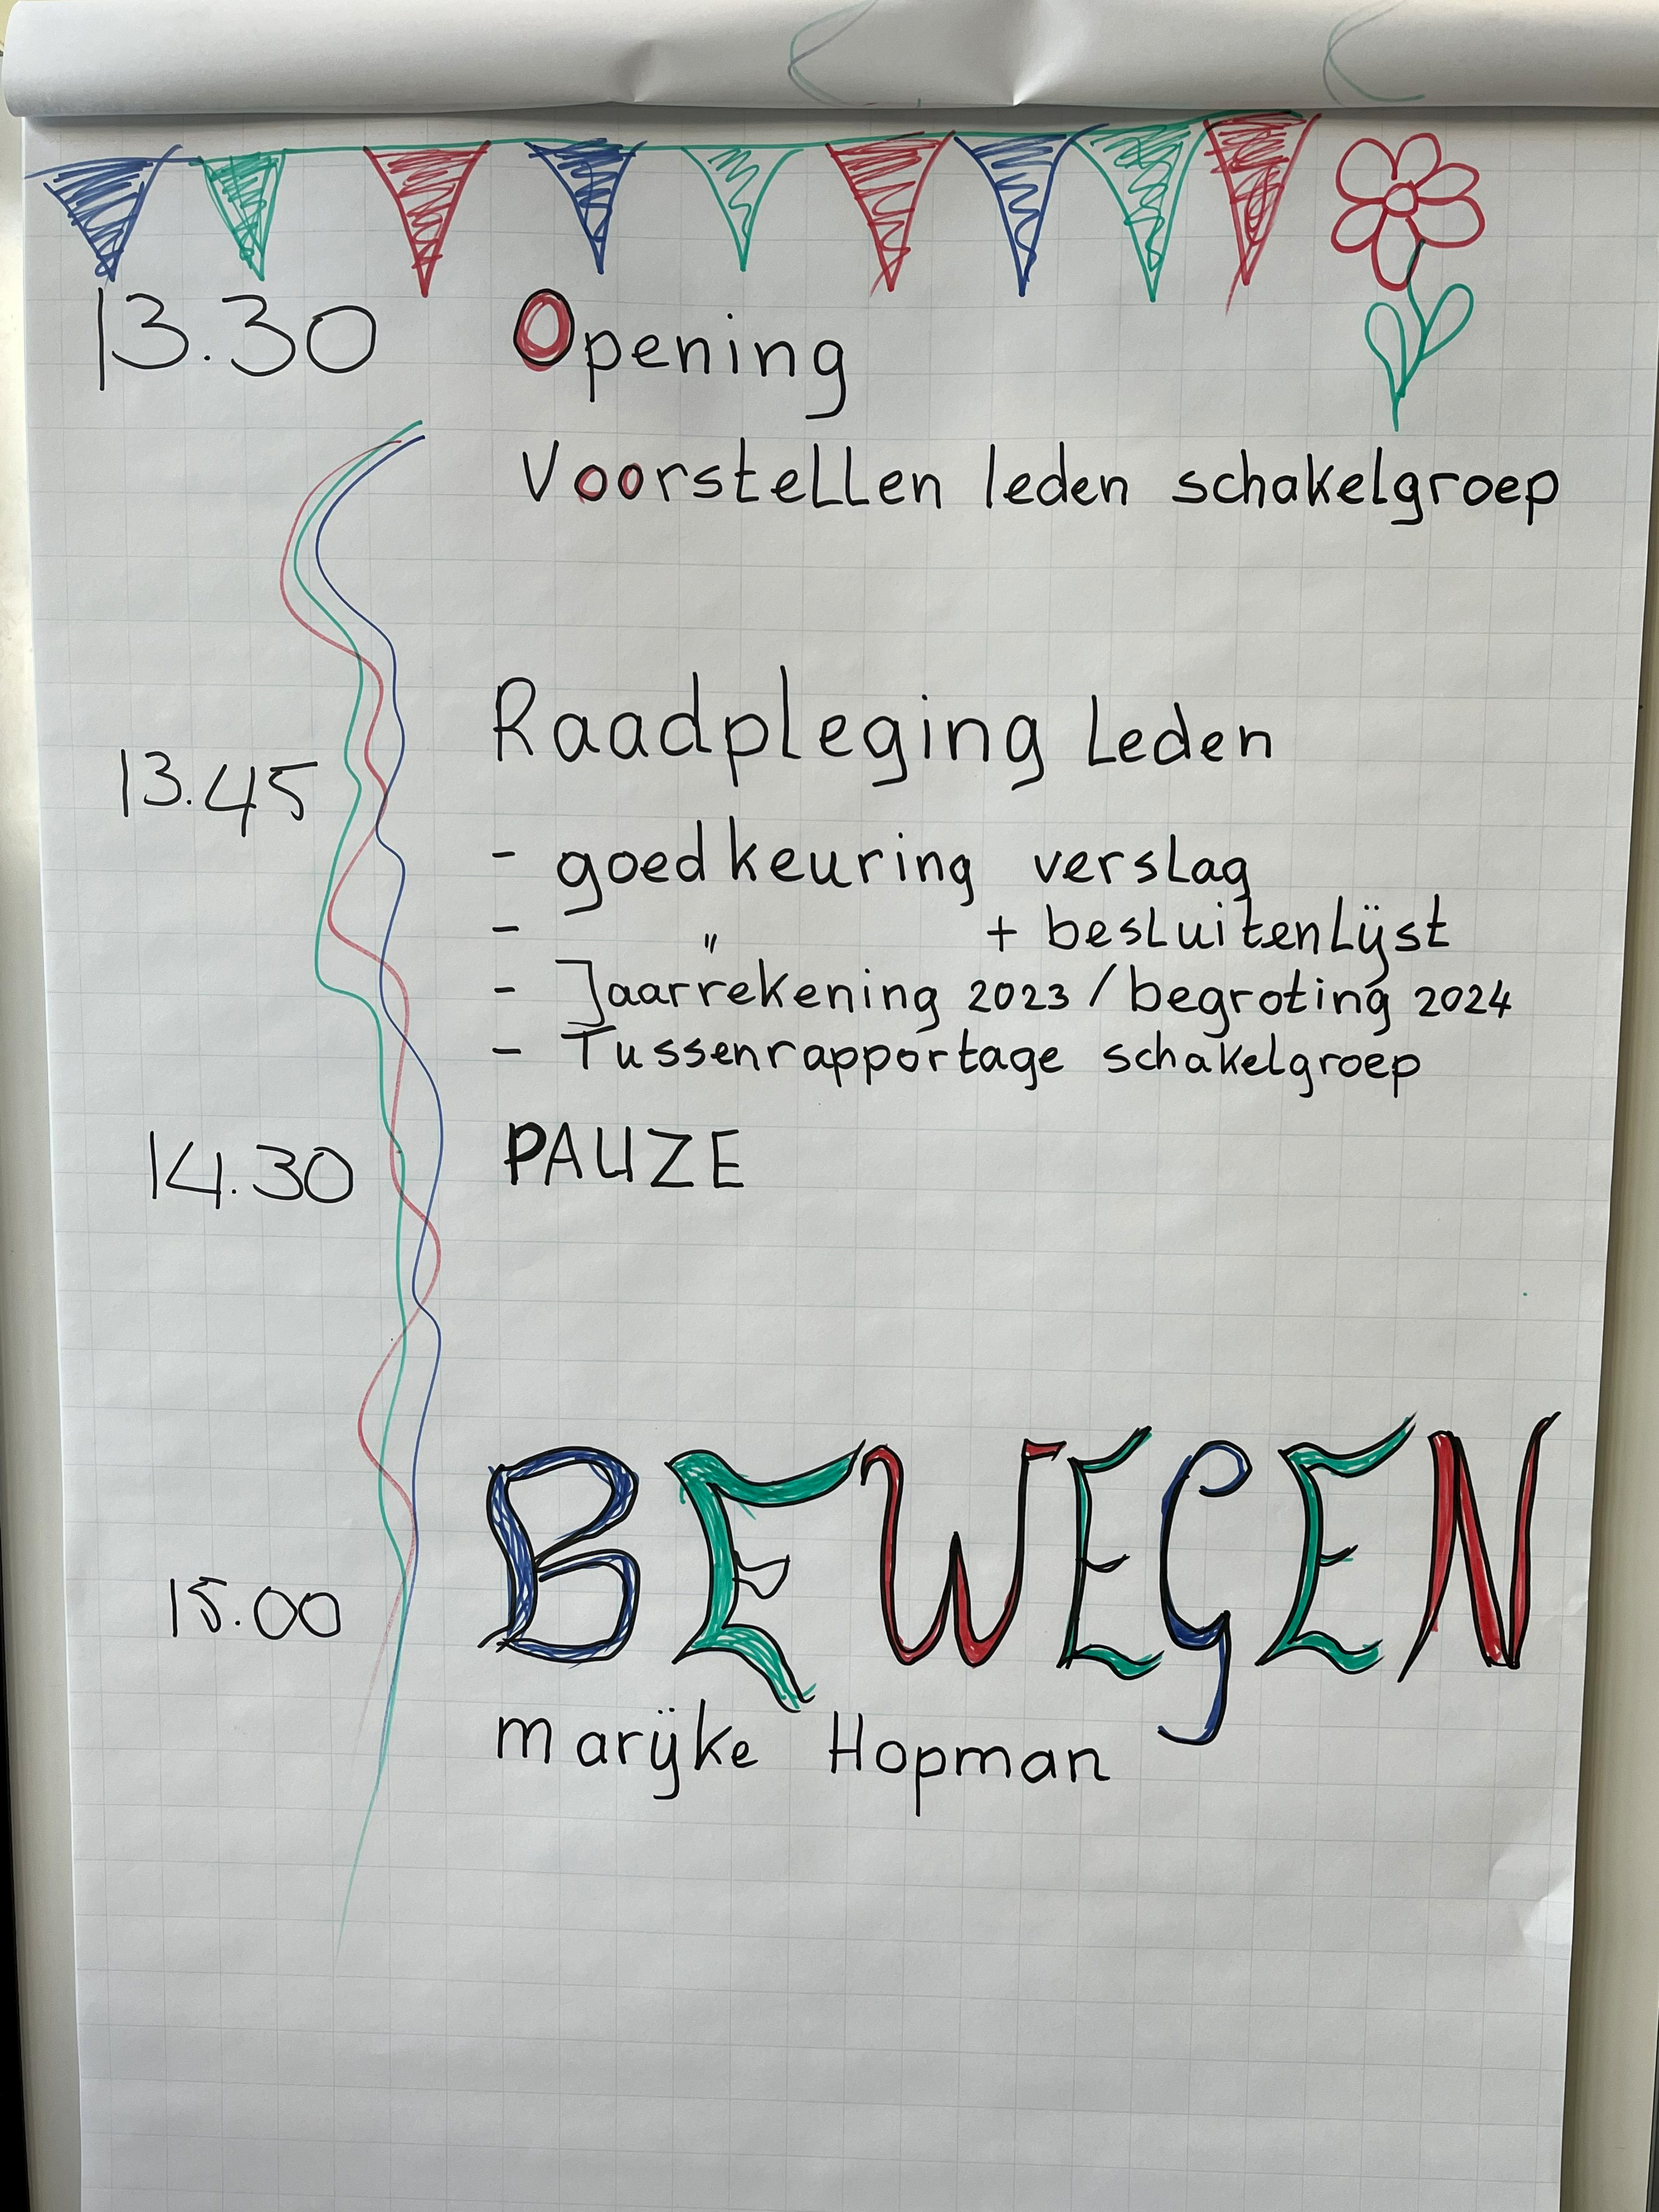 13.30 Opening
Voorstellen leden schakelgroep
Raadpleging Leden
13.45
- goedkeuring verslag
- " + besluitenlijst
- Jaarrekening 2023 / begroting 2024
- Tussenrapportage schakelgroep
14.30 PAUZE
BEWEGEN
15.00
Marijke Hopman